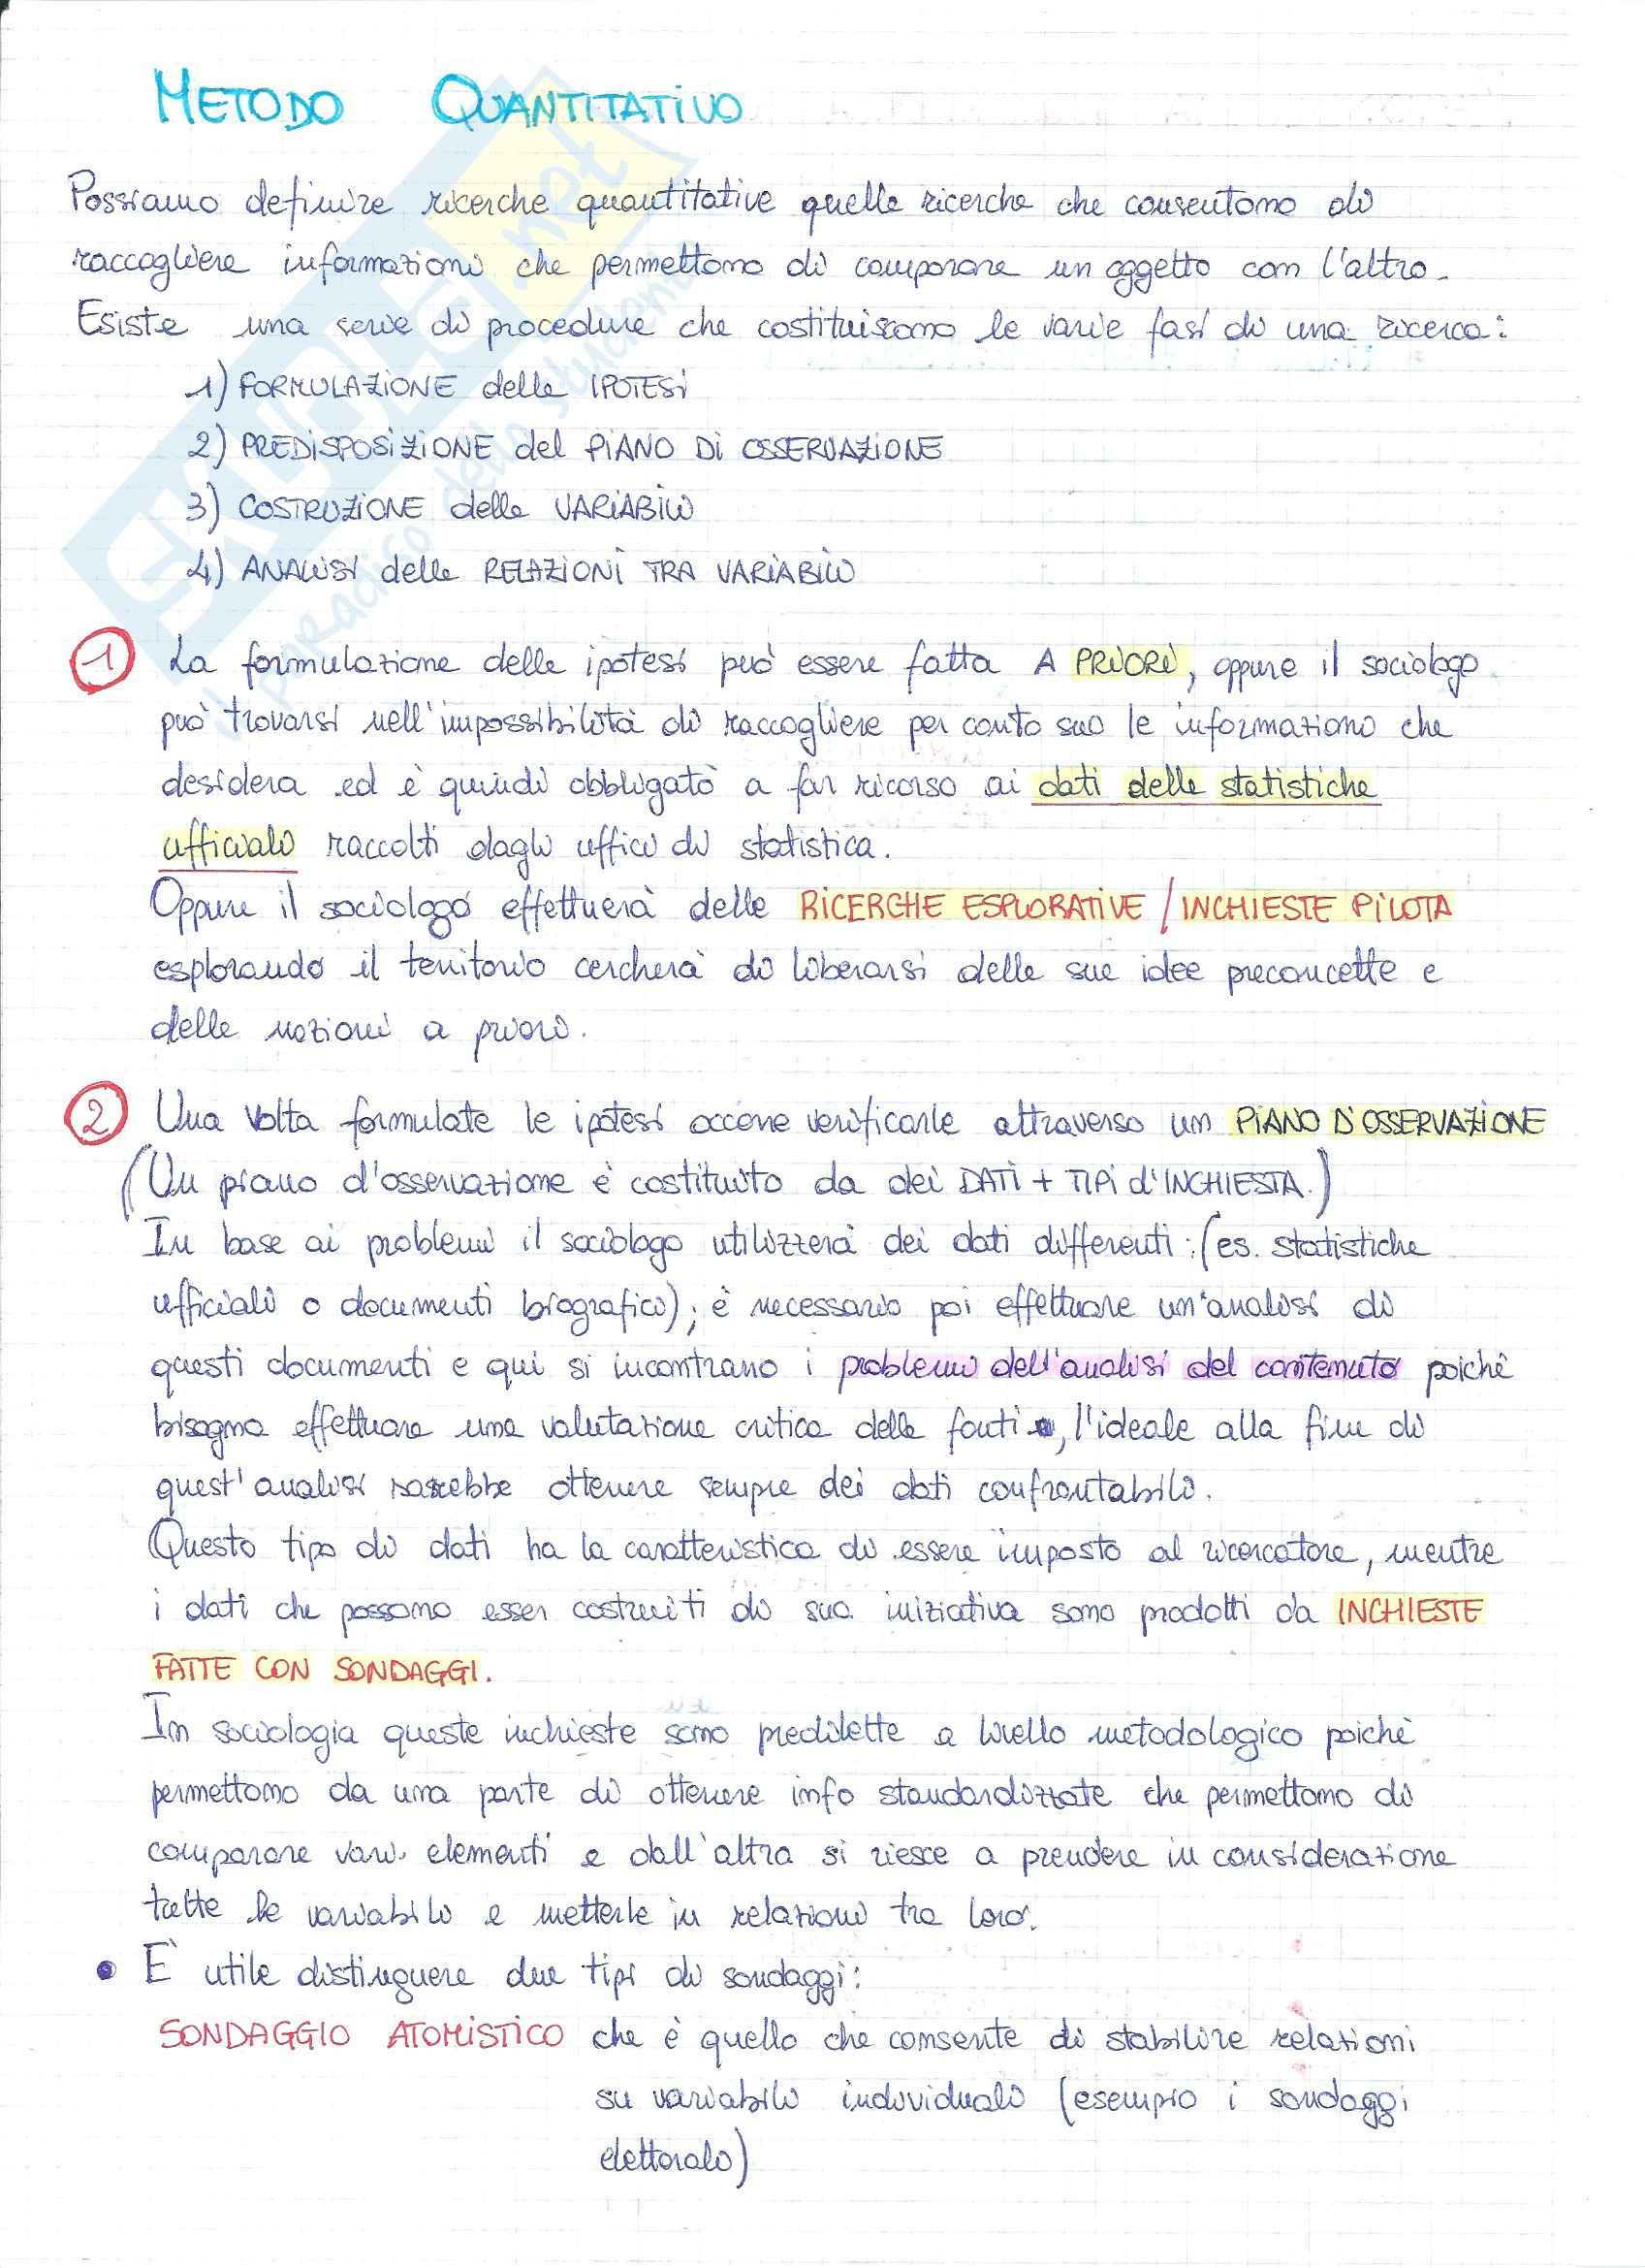 METODO QUANTITATIVO
Possiamo definire ricerche quantitative quelle ricerche che consentono di
raccogliere informazioni che permettono di comparare un oggetto con l'altro.
Esiste una serie di procedure che costituiscono le varie fasi di una ricerca:
1) FORMULAZIONE delle IPOTESI
2) PREDISPOSIZIONE del PIANO DI OSSERVAZIONE
3) COSTRUZIONE delle VARIABILI
4) ANALISI delle RELAZIONI TRA VARIABILI
1 La formulazione delle ipotesi può essere fatta A PRIORI, oppure il sociologo
può trovarsi nell'impossibilità di raccogliere per conto suo le informazioni che
desidera ed è quindi obbligato a far ricorso ai dati delle statistiche
ufficiali raccolti dagli uffici di statistica.
Oppure il sociologo effettuerà delle RICERCHE ESPLORATIVE / INCHIESTE PILOTA
esplorando il territorio cercherà di liberarsi delle sue idee preconcette e
delle nozioni a priori.
2 Una volta formulate le ipotesi occorre verificarle attraverso un PIANO D'OSSERVAZIONE
(Un piano d'osservazione è costituito da dei DATI + TIPI d'INCHIESTA.)
In base ai problemi il sociologo utilizzerà dei dati differenti: (es. statistiche
ufficiali o documenti biografici); è necessario poi effettuare un'analisi di
questi documenti e qui si incontrano i problemi dell'analisi del contenuto poichè
bisogna effettuare una valutazione critica delle fonti, l'ideale alla fine di
quest'analisi sarebbe ottenere sempre dei dati confrontabili.
Questo tipo di dati ha la caratteristica di essere imposto al ricercatore, mentre
i dati che possono esser costruiti di sua iniziativa sono prodotti da INCHIESTE
FATTE CON SONDAGGI.
In sociologia queste inchieste sono predilette a livello metodologico poichè
permettono da una parte di ottenere info standardizzate che permettono di
comparare vari elementi e dall'altra si riesce a prendere in considerazione
tutte le variabili e metterle in relazioni tra loro.
• È utile distinguere due tipi di sondaggi:
SONDAGGIO ATOMISTICO che è quello che consente di stabilire relazioni
su variabili individuali (esempio i sondaggi
elettorali)
SKUOLA.net
il paradiso dello studente